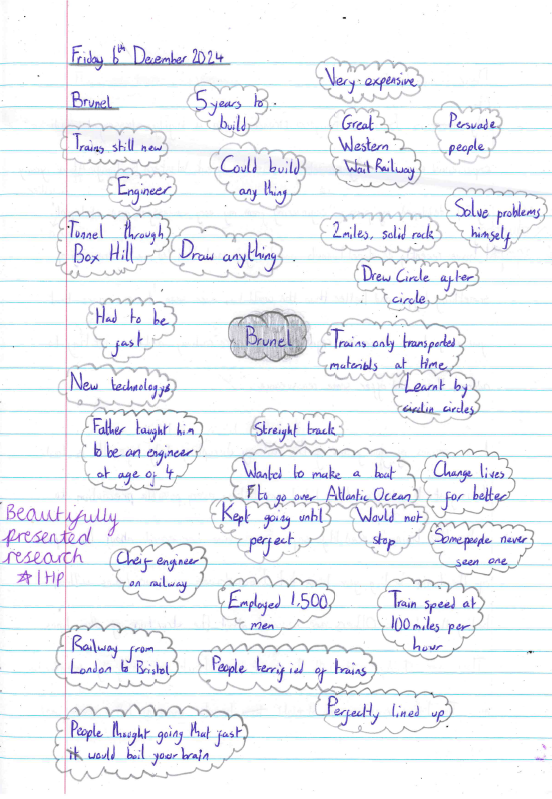 Friday 6th December 2024
Brunel
5 years to
build
Very expensive
Trains still new
Great
Western
Wait Railway
Persuade
people
Could build
any thing
Engineer
Solve problems
himself
Tunnel through
Box Hill
Draw anything
2 miles, solid rock
Drew Circle after
circle
Had to be
fast
Brunel
Trains only transported
materibls at time
New technologys
Learnt by
circlin circles
Father taught him
to be an engineer
at age of 4
Streight track
Wanted to make a boat
to go over Atlantic Ocean
Change lives
for better
Kept going until
perfect
Would not
stop
Some people never
seen one
Beautifully
presented
research
☆ 1 HP
Cheif engineer
on railway
Employed 1,500
men
Train speed at
100 miles per
hour
Railway from
London to Bristol
People terrified of trains
Perfectly lined up
People thought going that fast
it would boil your brain